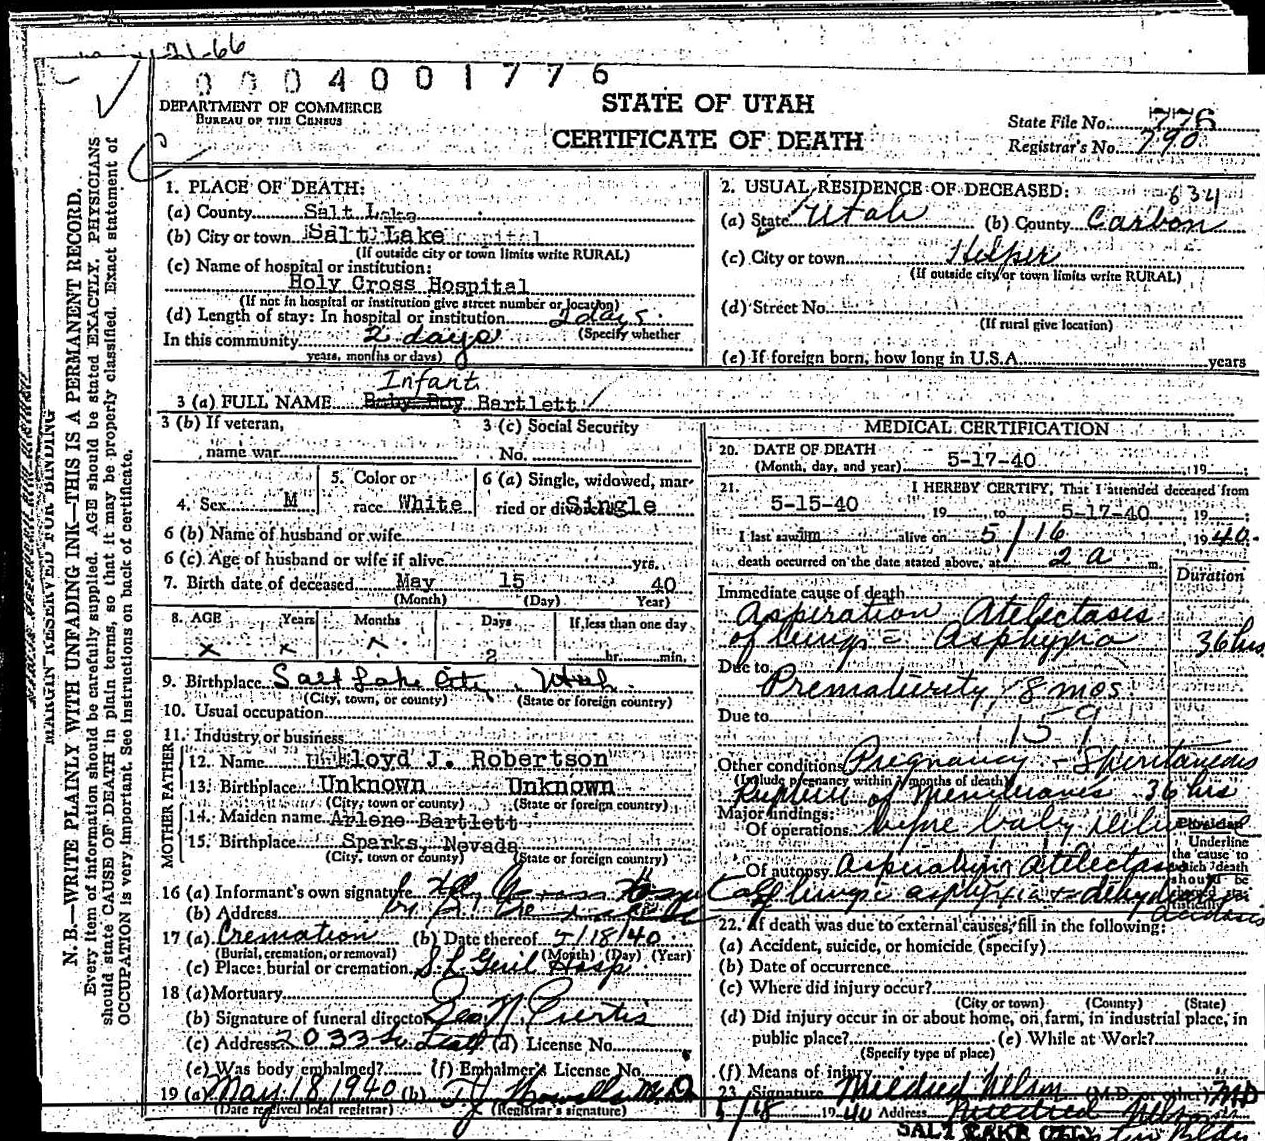 21-66
0004001776
DEPARTMENT OF COMMERCE
BUREAU OF THE CENSUS
STATE OF UTAH
CERTIFICATE OF DEATH
State File No. 776
Registrar's No. 790
MARGIN RESERVED FOR BINDING
N. B.—WRITE PLAINLY WITH UNFADING INK—THIS IS A PERMANENT RECORD.
Every item of information should be carefully supplied. AGE should be stated EXACTLY. PHYSICIANS
should state CAUSE OF DEATH in plain terms, so that it may be properly classified. Exact statement of
OCCUPATION is very important. See instructions on back of certificate.
1. PLACE OF DEATH:
(a) County Salt Lake
(b) City or town Salt Lake
(If outside city or town limits write RURAL)
(c) Name of hospital or institution:
Holy Cross Hospital
(If not in hospital or institution give street number or location)
(d) Length of stay: In hospital or institution 2 days
(Specify whether
In this community 2 days
years, months or days)
2. USUAL RESIDENCE OF DECEASED: 634
(a) State Utah (b) County Carbon
(c) City or town Helper
(If outside city or town limits write RURAL)
(d) Street No.
(If rural give location)
(e) If foreign born, how long in U.S.A. years
Infant
3 (a) FULL NAME Baby Boy Bartlett
3 (b) If veteran, name war
3 (c) Social Security No.
4. Sex M
5. Color or race White
6 (a) Single, widowed, married or divorced Single
6 (b) Name of husband or wife
6 (c) Age of husband or wife if alive yrs.
7. Birth date of deceased May 15 40
(Month) (Day) Year)
8. AGE Years Months Days If less than one day
x x x 2 hr. min.
9. Birthplace Salt Lake City, Utah
(City, town, or county) (State or foreign country)
10. Usual occupation
11. Industry or business
FATHER
12. Name Lloyd J. Robertson
13. Birthplace Unknown Unknown
(City, town or county) (State or foreign country)
MOTHER
14. Maiden name Arlene Bartlett
15. Birthplace Sparks, Nevada
(City, town or county) (State or foreign country)
16 (a) Informant's own signature
(b) Address
17 (a) Cremation (b) Date thereof 5/18/40
(Burial, cremation, or removal) (Month) (Day) (Year)
(c) Place: burial or cremation S.L. Genl Hosp
18 (a) Mortuary
(b) Signature of funeral director Geo N. Curtis
(c) Address 2033 So. (d) License No.
(e) Was body embalmed? (f) Embalmer's License No.
19 (a) May 18 1940 (b) T.J. Howells M.D.
(Date received local registrar) (Registrar's signature)
MEDICAL CERTIFICATION
20. DATE OF DEATH
(Month, day, and year) 5-17-40 19
21. I HEREBY CERTIFY, That I attended deceased from
5-15-40 19 to 5-17-40 19
I last saw him alive on 5/16 1940.
death occurred on the date stated above, at 2 a m.
Duration
Immediate cause of death
Aspiration Atelectasis
of lungs = Asphyxia 36 hrs
Due to Prematurity, 8 mos
Due to 159
Other conditions Pregnancy - Spontaneous
(Include pregnancy within 3 months of death)
Rupture of Membranes 36 hrs
Major findings:
Of operations before baby
Of autopsy Aspiration atelectasis
of lungs asphyxia dehydration
acidosis
Physician
Underline
the cause to
which death
should be
charged sta-
tistically
22. If death was due to external causes, fill in the following:
(a) Accident, suicide, or homicide (specify)
(b) Date of occurrence
(c) Where did injury occur?
(City or town) (County) (State)
(d) Did injury occur in or about home, on farm, in industrial place, in
public place? (e) While at Work?
(Specify type of place)
(f) Means of injury
23 Signature Mildred Nelson (M.D. MD
5/18 1940 Address Mildred Nelson
SALT LAKE CITY